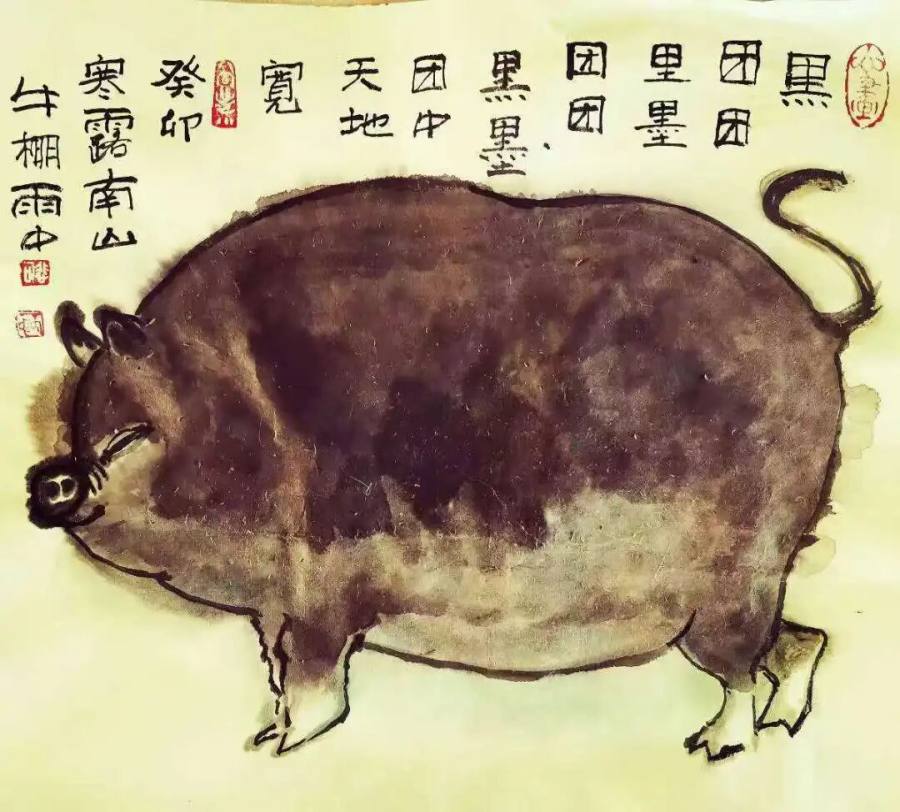 心畫
黑
团团
里墨
团团
黑墨
团中
天地
寬
癸卯
寒露南山
牛棚雨中